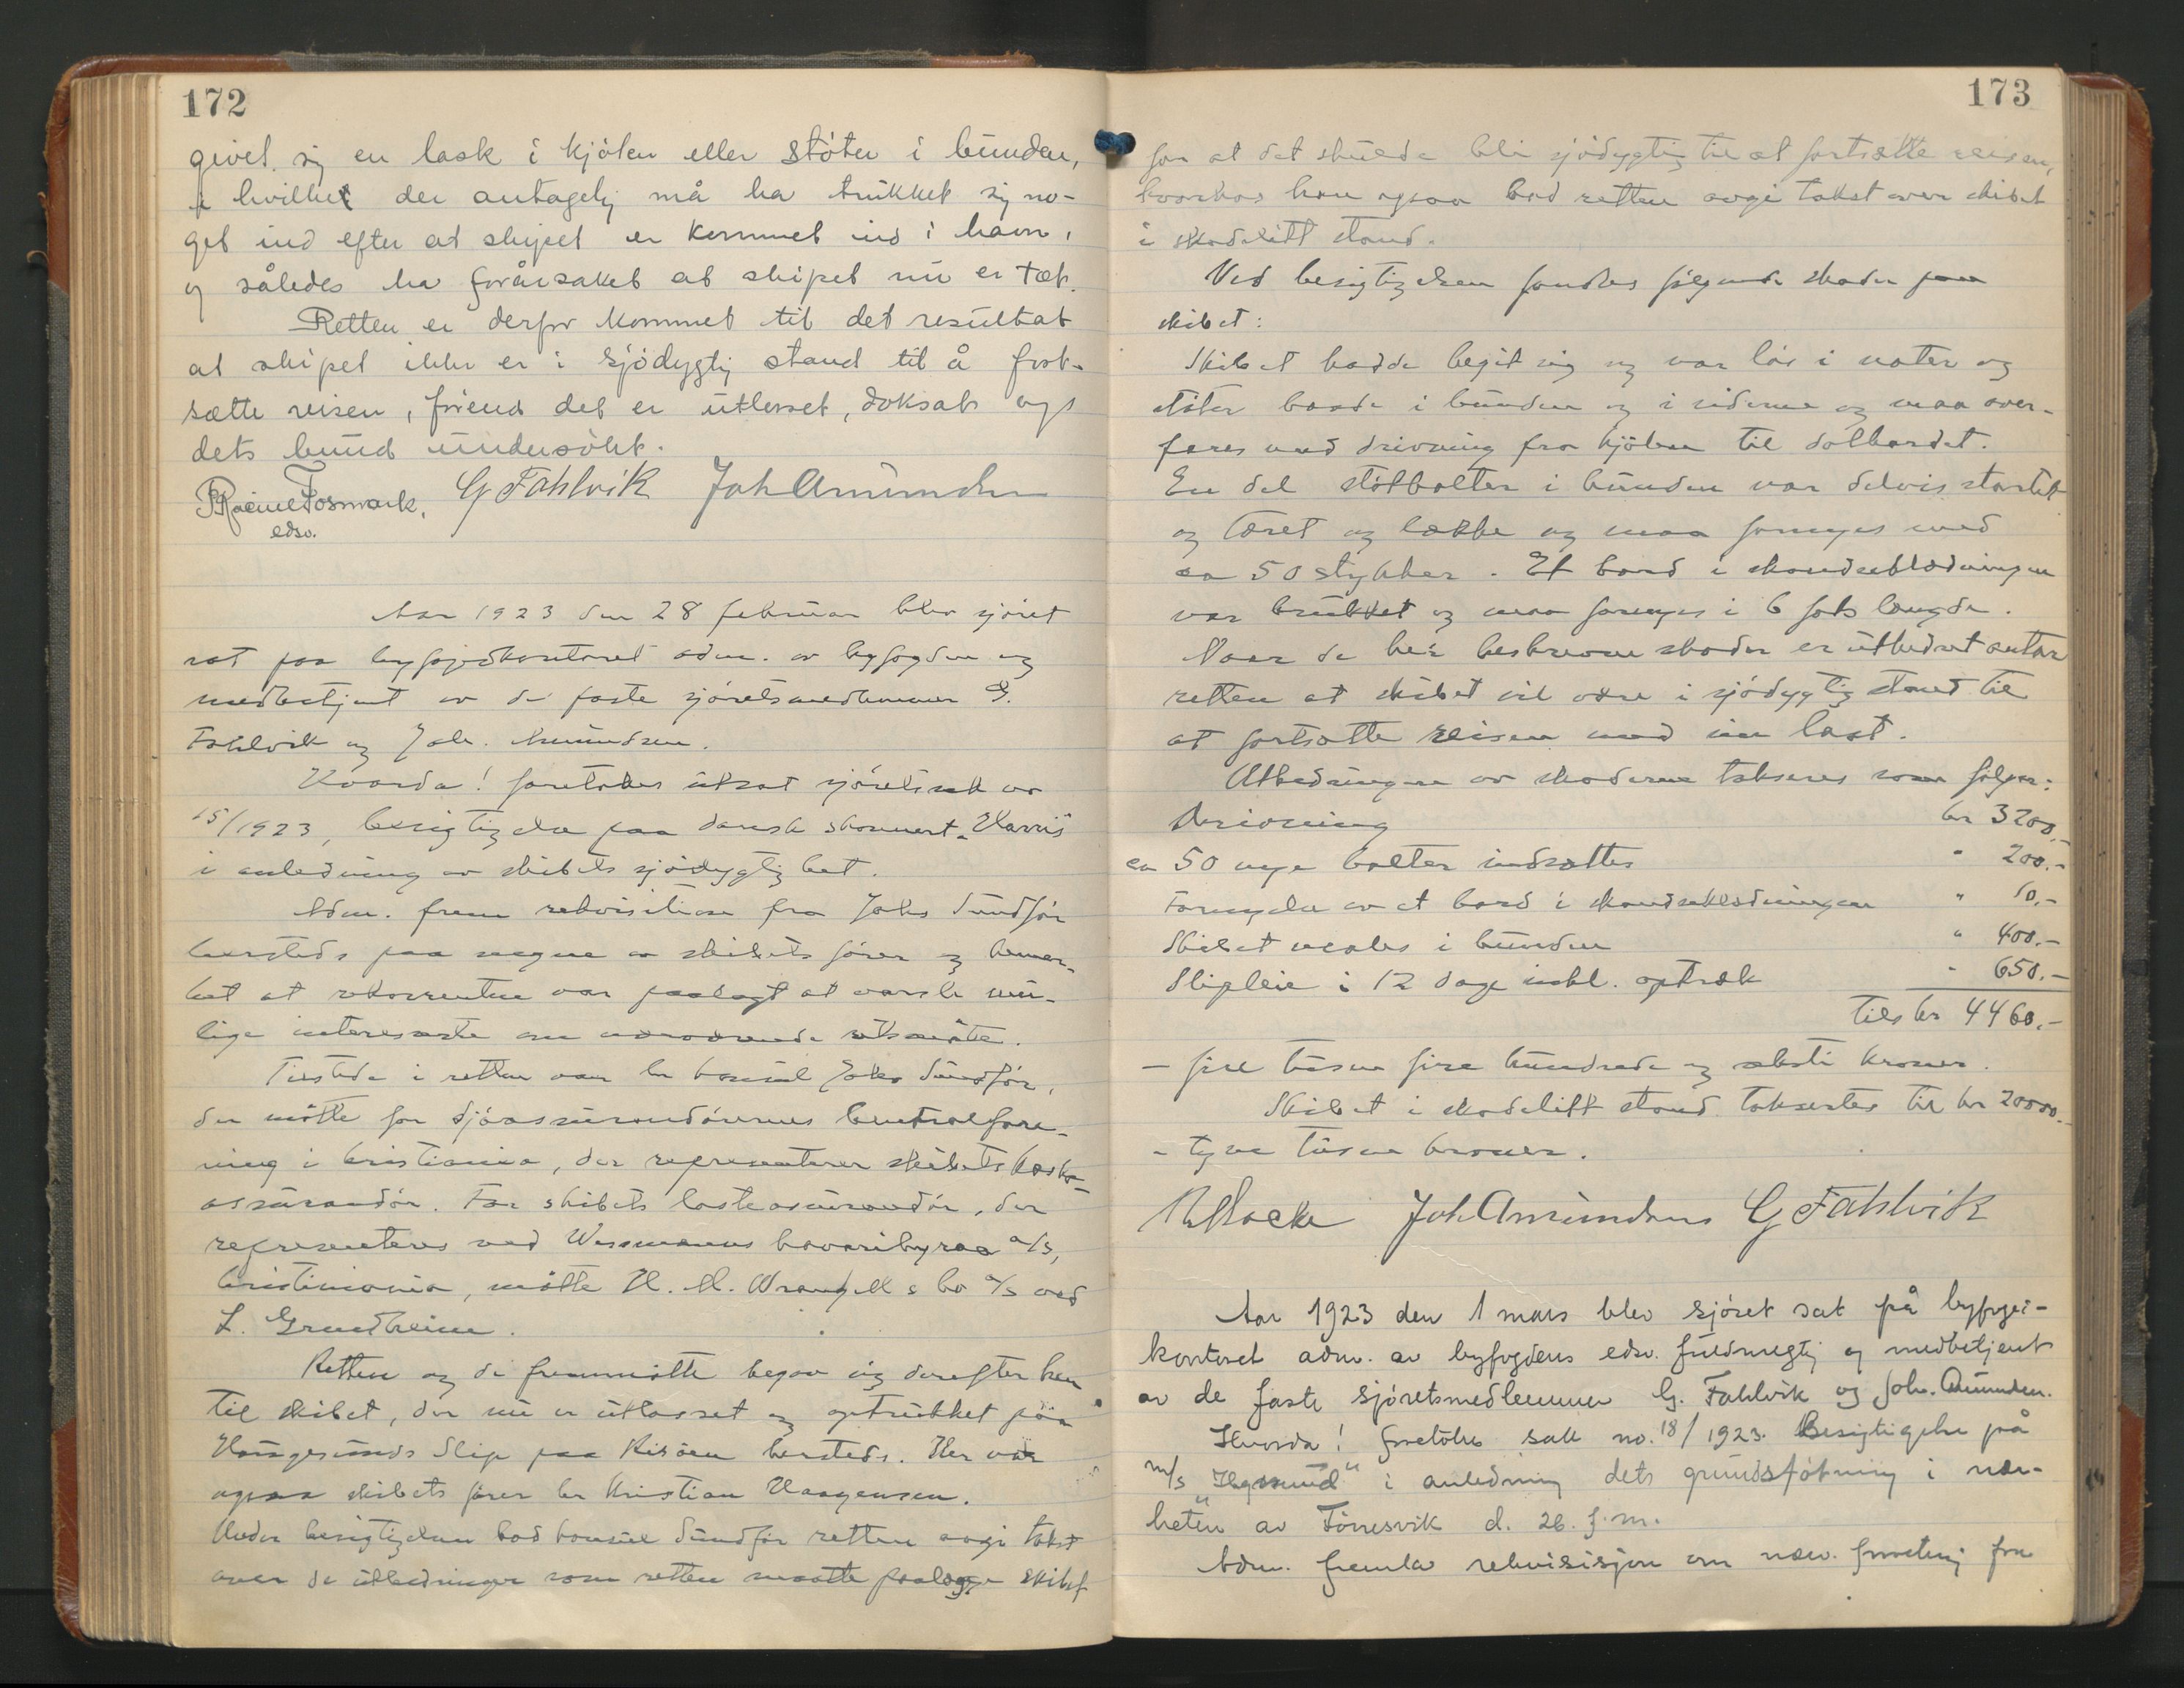 172
givet sig en lask i kjølen eller støter i bunden,
i hvilket der antagelig må ha trukket sig no-
get ind efter at skipet er kommet ind i havn,
og således ha forårsaket at skipet nu er tæt.
Retten er derfor kommet til det resultat
at skipet ikke er i sjødygtig stand til å fort-
sætte reisen, førend det er utlosset, doksat og
dets bund undersøkt.
Fosmark, G Fahlvik Joh Amundsen
edsv.
Aar 1923 den 28 februar blev sjøret
sat paa byfogedkontoret adm. av byfogden og
medbetjent av de faste sjøretsmedlemmer G.
Fahlvik og Joh. Amundsen.
Hvorda! foretokes utsat sjøretssak no
15/1923, besigtigelse paa dansk skonnert "Harris"
i anledning av skibets sjødygtighet.
Adm. frem rekvisition fra Johs Sundfør
hersteds paa vegne av skibets fører og bemer-
ket at rekvirenten var paalagt at varsle mu-
lige interesserte om nærværende retsmøte.
Tilstede i retten var hr konsul Johs Sundfør,
der møtte for Sjøassurandørernes Centralfore-
ning i Kristiania, der representerer skibets kasko-
assurandør. For skibets lasteassurandør, der
representeres ved Wessmanns havaribyraa a/s,
Kristiania, møtte H. M. Wrangell & Co a/s ved
L. Grundheim.
Retten og de fremmøtte begav sig derefter hen
til skibet, der nu er utlosset og optrukket paa
Haugesunds Slip paa Risøen hersteds. Her var
ogsaa skibets fører hr Kristian Haagensen.
Under besigtigelsen bad konsul Sundfør retten avgi takst
over de utbedringer som retten maatte paalægge skibet
173
for at det skulde bli sjødygtig til at fortsætte reisen,
hvorhos han ogsaa bad retten avgi takst over skibet
i skadelitt stand.
Ved besigtigelsen fandtes følgende skader paa
skibet:
Skibet hadde begit sig og var løs i nater og
støter baade i bunden og i siderne og maa over-
fares med drivning fra kjølen til dolbordet.
En del støtbolter i bunden var delvis startet
og tæret og lække og maa fornyes med
ca 50 stykker. Et bord i skandseklædningen
var brukket og maa fornyes i 6 fots længde.
Naar de her beskrevne skader er utbedret antar
retten at skibet vil være i sjødygtig stand til
at fortsætte reisen med sin last.
Utbedringen av skaderne takseres som følger:
Drivning kr 3200,-
ca 50 nye bolter indsættes " 200.-
Fornyelse av et bord i skandseklædningen " 10.-
Skibet males i bunden " 400.-
Slipleie i 12 dage inkl. optræk " 650.-
Tils kr 4460.-
- fire tusen fire hundrede og seksti kroner.
Skibet i skadelitt stand taksertes til kr 20000.-
- tyve tusen kroner.
Joh Amundsen G Fahlvik
Aar 1923 den 1 mars blev sjøret sat på byfogd-
kontoret adm. av byfogdens edsv. fuldmegtig og medbetjent
av de faste sjøretsmedlemmer G. Fahlvik og Joh. Amundsen.
Hvorda! foretokes sak no. 18/1923. Besigtigelse på
m/s "Hgsund" i anledning dets grundstøtning i nær-
heten av Førresvik d. 26. f.m.
Adm. fremla rekvisisjon om næv. forretning fra